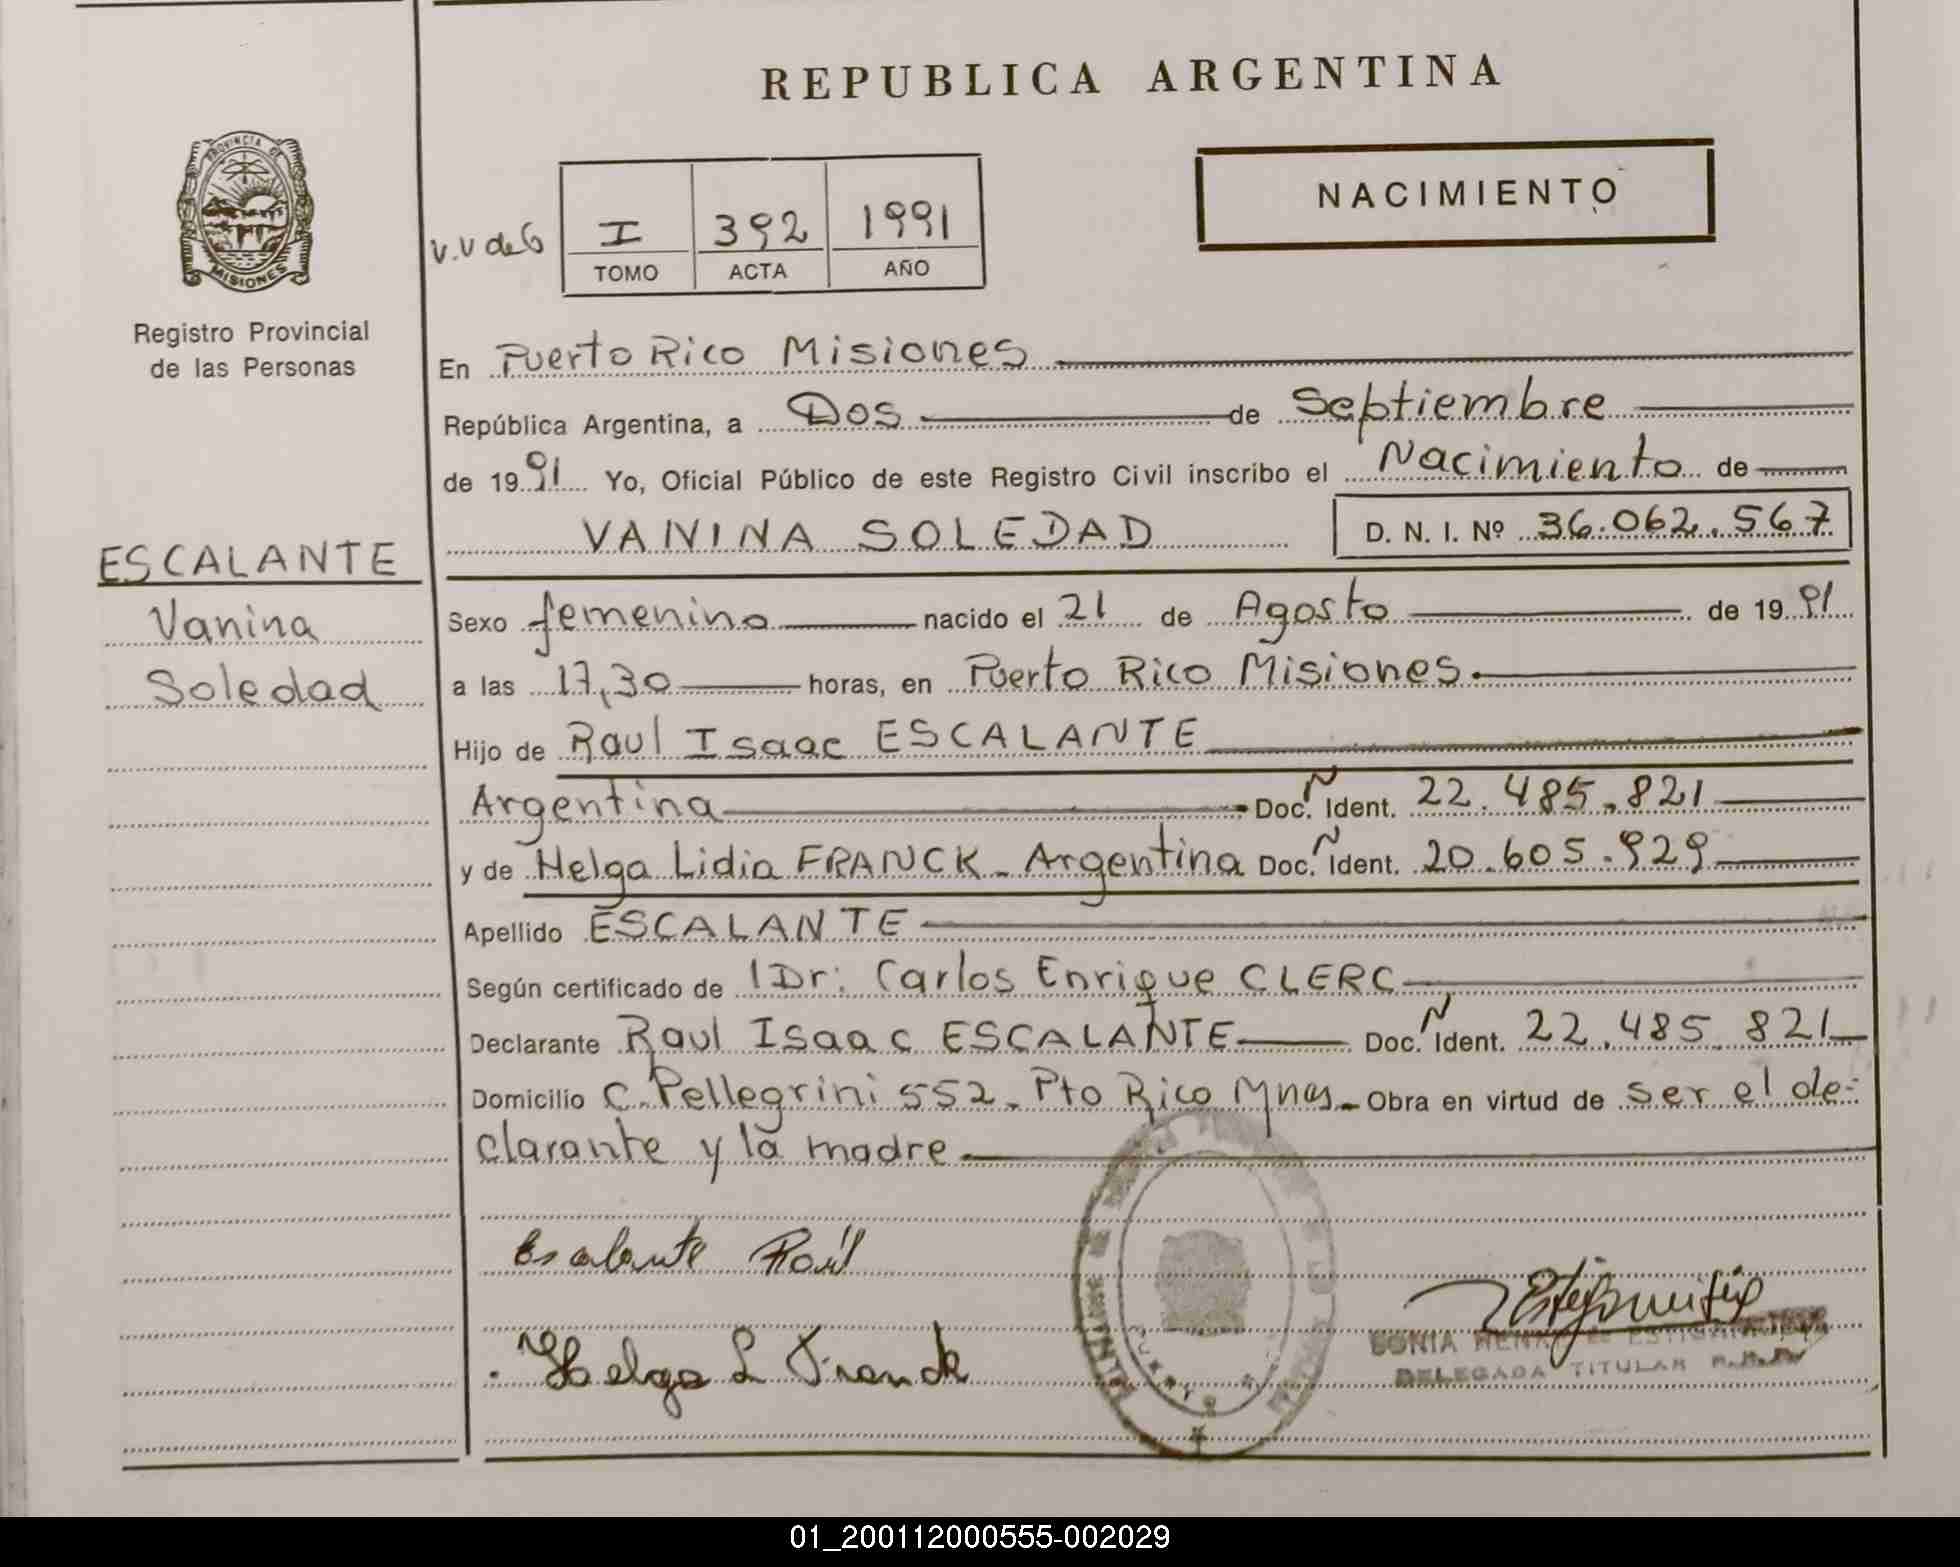 REPUBLICA ARGENTINA
PROVINCIA DE
MISIONES
Registro Provincial
de las Personas
NACIMIENTO
V.V de G
I 392 1991
TOMO ACTA AÑO
En Puerto Rico Misiones
República Argentina, a Dos de Septiembre
de 1991 Yo, Oficial Público de este Registro Civil inscribo el Nacimiento de
VANINA SOLEDAD D. N. I. Nº 36.062.567
ESCALANTE
Vanina
Soledad
Sexo femenino nacido el 21 de Agosto de 1991
a las 17,30 horas, en Puerto Rico Misiones.
Hijo de Raul Isaac ESCALANTE
Argentina Doc. N Ident. 22.485.821
y de Helga Lidia FRANCK - Argentina Doc. N Ident. 20.605.929
Apellido ESCALANTE
Según certificado de Dr: Carlos Enrique CLERC
Declarante Raul Isaac ESCALANTE Doc. N Ident. 22.485.821
Domicilio C. Pellegrini 552. Pto Rico Mnes Obra en virtud de ser el de-
clarante y la madre
Escalante Raúl
Helga L Franck
SONIA
DELEGADA TITULAR
01_200112000555-002029